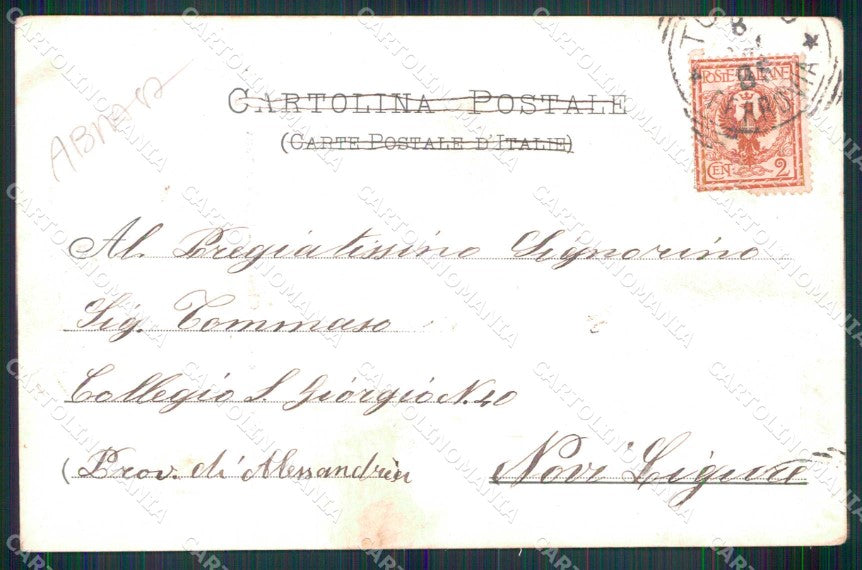 CARTOLINA POSTALE
(CARTE POSTALE D'ITALIE)
POSTE ITALIANE
CEN. 2
Al Pregiatissino Signorino
Sig. Tommaso
Collegio S. Giorgio N. 40
(Prov. di Alessandria
Novi Ligure
CARTOLINOMANIA